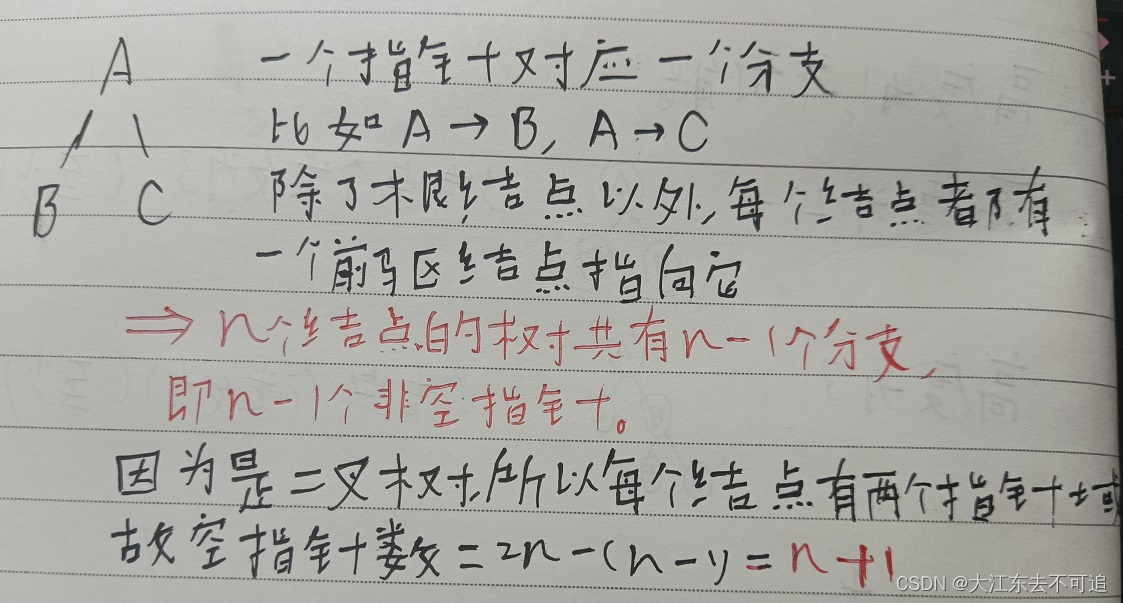 A
B
C
一个指针对应一个分支
比如 A → B, A → C
除了根结点以外,每个结点都有
一个前驱结点指向它
⇒ n个结点的树共有n-1个分支,
即n-1个非空指针。
因为是二叉树,所以每个结点有两个指针域
故空指针数 = 2n-(n-1) = n+1
CSDN @大江东去不可追